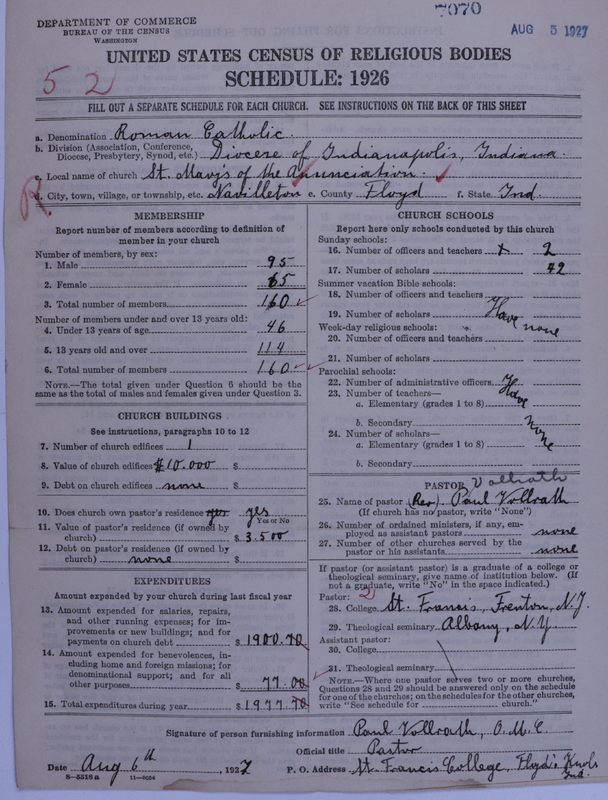 7070
AUG 5 1927
DEPARTMENT OF COMMERCE
BUREAU OF THE CENSUS
WASHINGTON
UNITED STATES CENSUS OF RELIGIOUS BODIES
SCHEDULE: 1926
52
FILL OUT A SEPARATE SCHEDULE FOR EACH CHURCH. SEE INSTRUCTIONS ON THE BACK OF THIS SHEET
a. Denomination Roman Catholic.
b. Division (Association, Conference, Diocese, Presbytery, Synod, etc.) Diocese of Indianapolis, Indiana.
c. Local name of church St. Mary's of the Anunciation.
R.
d. City, town, village, or township, etc. Navilleton e. County Floyd f. State Ind.
MEMBERSHIP
Report number of members according to definition of member in your church
Number of members, by sex:
1. Male 95
2. Female 65
3. Total number of members 160
Number of members under and over 13 years old:
4. Under 13 years of age 46
5. 13 years old and over 114
6. Total number of members 160
NOTE.—The total given under Question 6 should be the same as the total of males and females given under Question 3.
CHURCH BUILDINGS
See instructions, paragraphs 10 to 12
7. Number of church edifices 1
8. Value of church edifices $10.000 $
9. Debt on church edifices none $
10. Does church own pastor's residence yes yes
Yes or No
11. Value of pastor's residence (if owned by church) $3.500
12. Debt on pastor's residence (if owned by church) none $
EXPENDITURES
Amount expended by your church during last fiscal year
13. Amount expended for salaries, repairs, and other running expenses; for improvements or new buildings; and for payments on church debt $1900.70
14. Amount expended for benevolences, including home and foreign missions; for denominational support; and for all other purposes $77.00
15. Total expenditures during year $1977.70
CHURCH SCHOOLS
Report here only schools conducted by this church
Sunday schools:
16. Number of officers and teachers x 2
17. Number of scholars 42
Summer vacation Bible schools:
18. Number of officers and teachers
19. Number of scholars Have none
Week-day religious schools:
20. Number of officers and teachers
21. Number of scholars
Parochial schools:
22. Number of administrative officers Have
23. Number of teachers—
a. Elementary (grades 1 to 8)
b. Secondary none
24. Number of scholars—
a. Elementary (grades 1 to 8)
b. Secondary
PASTOR Vollrath
25. Name of pastor (Rev) Paul Vollrath
(If church has no pastor, write "None")
26. Number of ordained ministers, if any, employed as assistant pastors none
27. Number of other churches served by the pastor or his assistants none
If pastor (or assistant pastor) is a graduate of a college or theological seminary, give name of institution below. (If not a graduate, write "No" in the space indicated.)
Pastor: 2
28. College St. Francis, Trenton, N.J.
29. Theological seminary Albany, N.Y.
Assistant pastor:
30. College
31. Theological seminary
NOTE.—Where one pastor serves two or more churches, Questions 28 and 29 should be answered only on the schedule for one of the churches; on the schedules for the other churches, write "See schedule for church."
Signature of person furnishing information Paul Vollrath, O.M.C.
Official title Pastor
Date Aug 6th, 1927 P. O. Address St. Francis College, Floyd's Knobs Ind.
8—5518a 11—9054